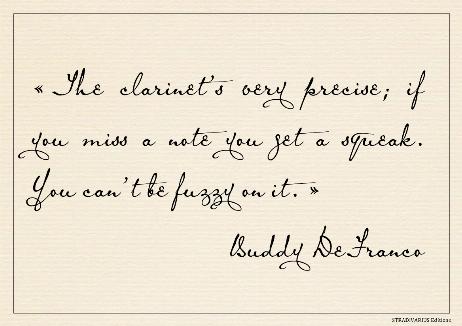 « The clarinet's very precise; if
you miss a note you get a squeak.
You can't be fuzzy on it. »
Buddy DeFranco
STRADIVARIUS Edizione